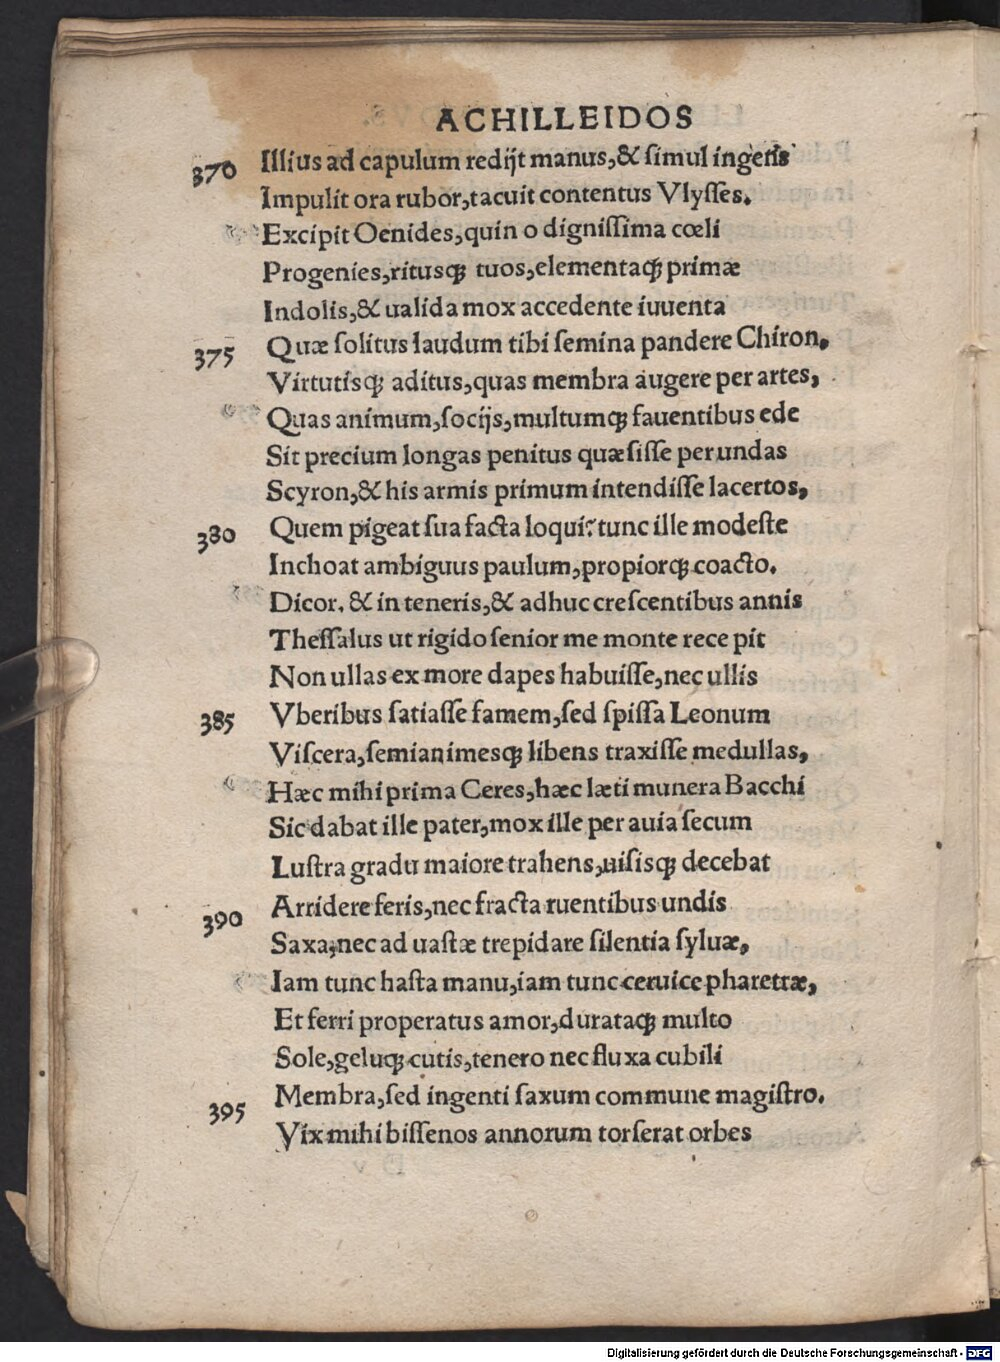 ACHILLEIDOS
370 Illius ad capulum redijt manus,& simul ingens
Impulit ora rubor,tacuit contentus Vlysses.
Excipit Oenides,quin o dignissima cœli
Progenies,ritusq; tuos,elementaq; primæ
Indolis,& ualida mox accedente iuuenta
375 Quæ solitus laudum tibi semina pandere Chiron,
Virtutisq; aditus,quas membra augere per artes,
Quas animum,socijs,multumq; fauentibus ede
Sit precium longas penitus quæsisse per undas
Scyron,& his armis primum intendisse lacertos,
380 Quem pigeat sua facta loqui? tunc ille modeste
Inchoat ambiguus paulum,propiorq; coacto.
Dicor. & in teneris,& adhuc crescentibus annis
Thessalus ut rigido senior me monte rece pit
Non ullas ex more dapes habuisse,nec ullis
385 Vberibus satiasse famem,sed spissa Leonum
Viscera,semianimesq; libens traxisse medullas,
Hæc mihi prima Ceres,hæc læti munera Bacchi
Sic dabat ille pater,mox ille per auia secum
Lustra gradu maiore trahens,uisisq; decebat
390 Arridere feris,nec fracta ruentibus undis
Saxa,nec ad uastæ trepidare silentia syluæ,
Iam tunc hasta manu,iam tunc ceruice pharetræ,
Et ferri properatus amor,durataq; multo
Sole,geluq; cutis,tenero nec fluxa cubili
395 Membra,sed ingenti saxum commune magistro.
Vix mihi bissenos annorum torserat orbes
Digitalisierung gefördert durch die Deutsche Forschungsgemeinschaft - DFG